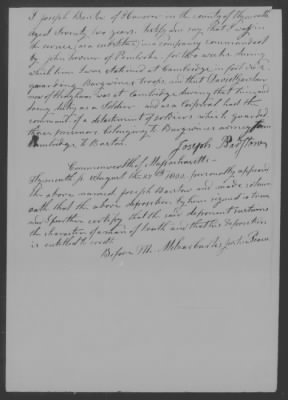 I Joseph Barstow of Hanover in the county of Plymouth
aged seventy two years testify and say that I was in
the service, as a substitute, in a company commanded
by John Turner of Pembroke for two weeks during
which time I was stationed at Cambridge in fort No 2
guarding Burgoines troops, and that David
of Hingham was at Cambridge during that time and
doing duty as a soldier and as a Corporal had the
command of a detachment of soldiers which guarded
some prisoners belonging to Burgoines army from
Cambridge to Boston.
Joseph Barstow
Commonwealth of Massachusetts
Plymouth ss August the 27th 1832 personally appeared
the above named Joseph Barstow and made solemn
oath that the above deposition by him signed is true
and I further certify that the said deponent sustains
the character of a man of truth and that his deposition
is entitled to credit.
Before Me Justice Peace